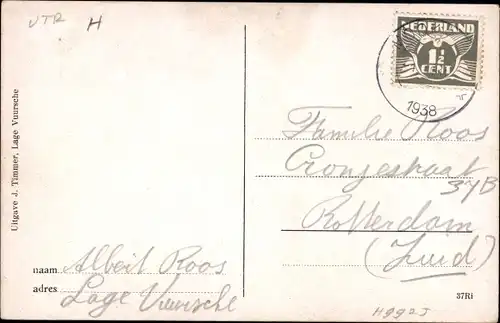 UTR H
NEDERLAND
1½
CENT
1938
Uitgave J. Timmer, Lage Vuursche
Familie Roos
Cronjestraat
37B
Rotterdam
(Zuid)
naam Albert Roos
adres Lage Vuursche
37Ri
H9925